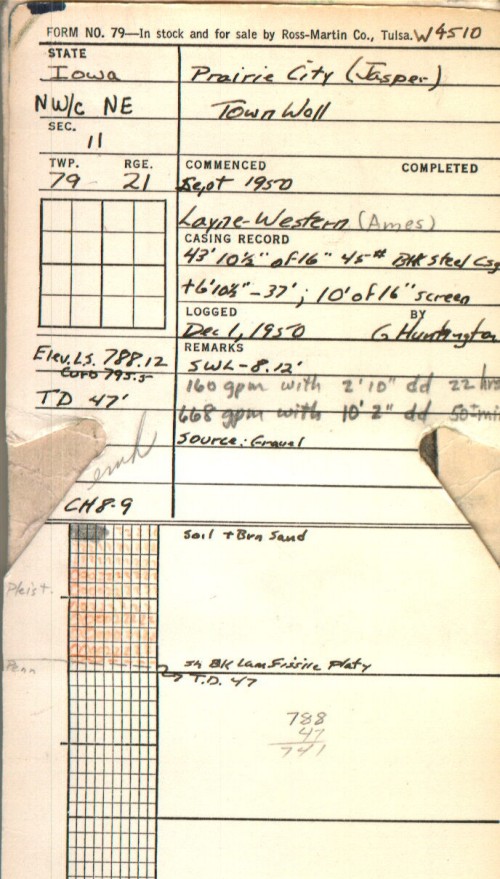 FORM NO. 79—In stock and for sale by Ross-Martin Co., Tulsa. W4510
STATE
Iowa
Prairie City (Jasper)
NW/c NE
Town Well
SEC.
11
TWP. RGE.
79 21
COMMENCED COMPLETED
Sept 1950
Layne-Western (Ames)
CASING RECORD
43' 10½" of 16" 45# Blk Steel Csg
+6'10½" - 37'; 10' of 16" screen
LOGGED BY
Dec 1, 1950 G Huntington
Elev. L.S. 788.12
Curb 795.5
REMARKS
SWL - 8.12'
160 gpm with 2'10" dd 22 hrs
TD 47'
668 gpm with 10' 2" dd 50 min
Source: Gravel
emh
CH 8-9
Soil + Brn Sand
Pleist.
Penn
sh Bk Lam Fissile Platy
T.D. 47
788
47
741